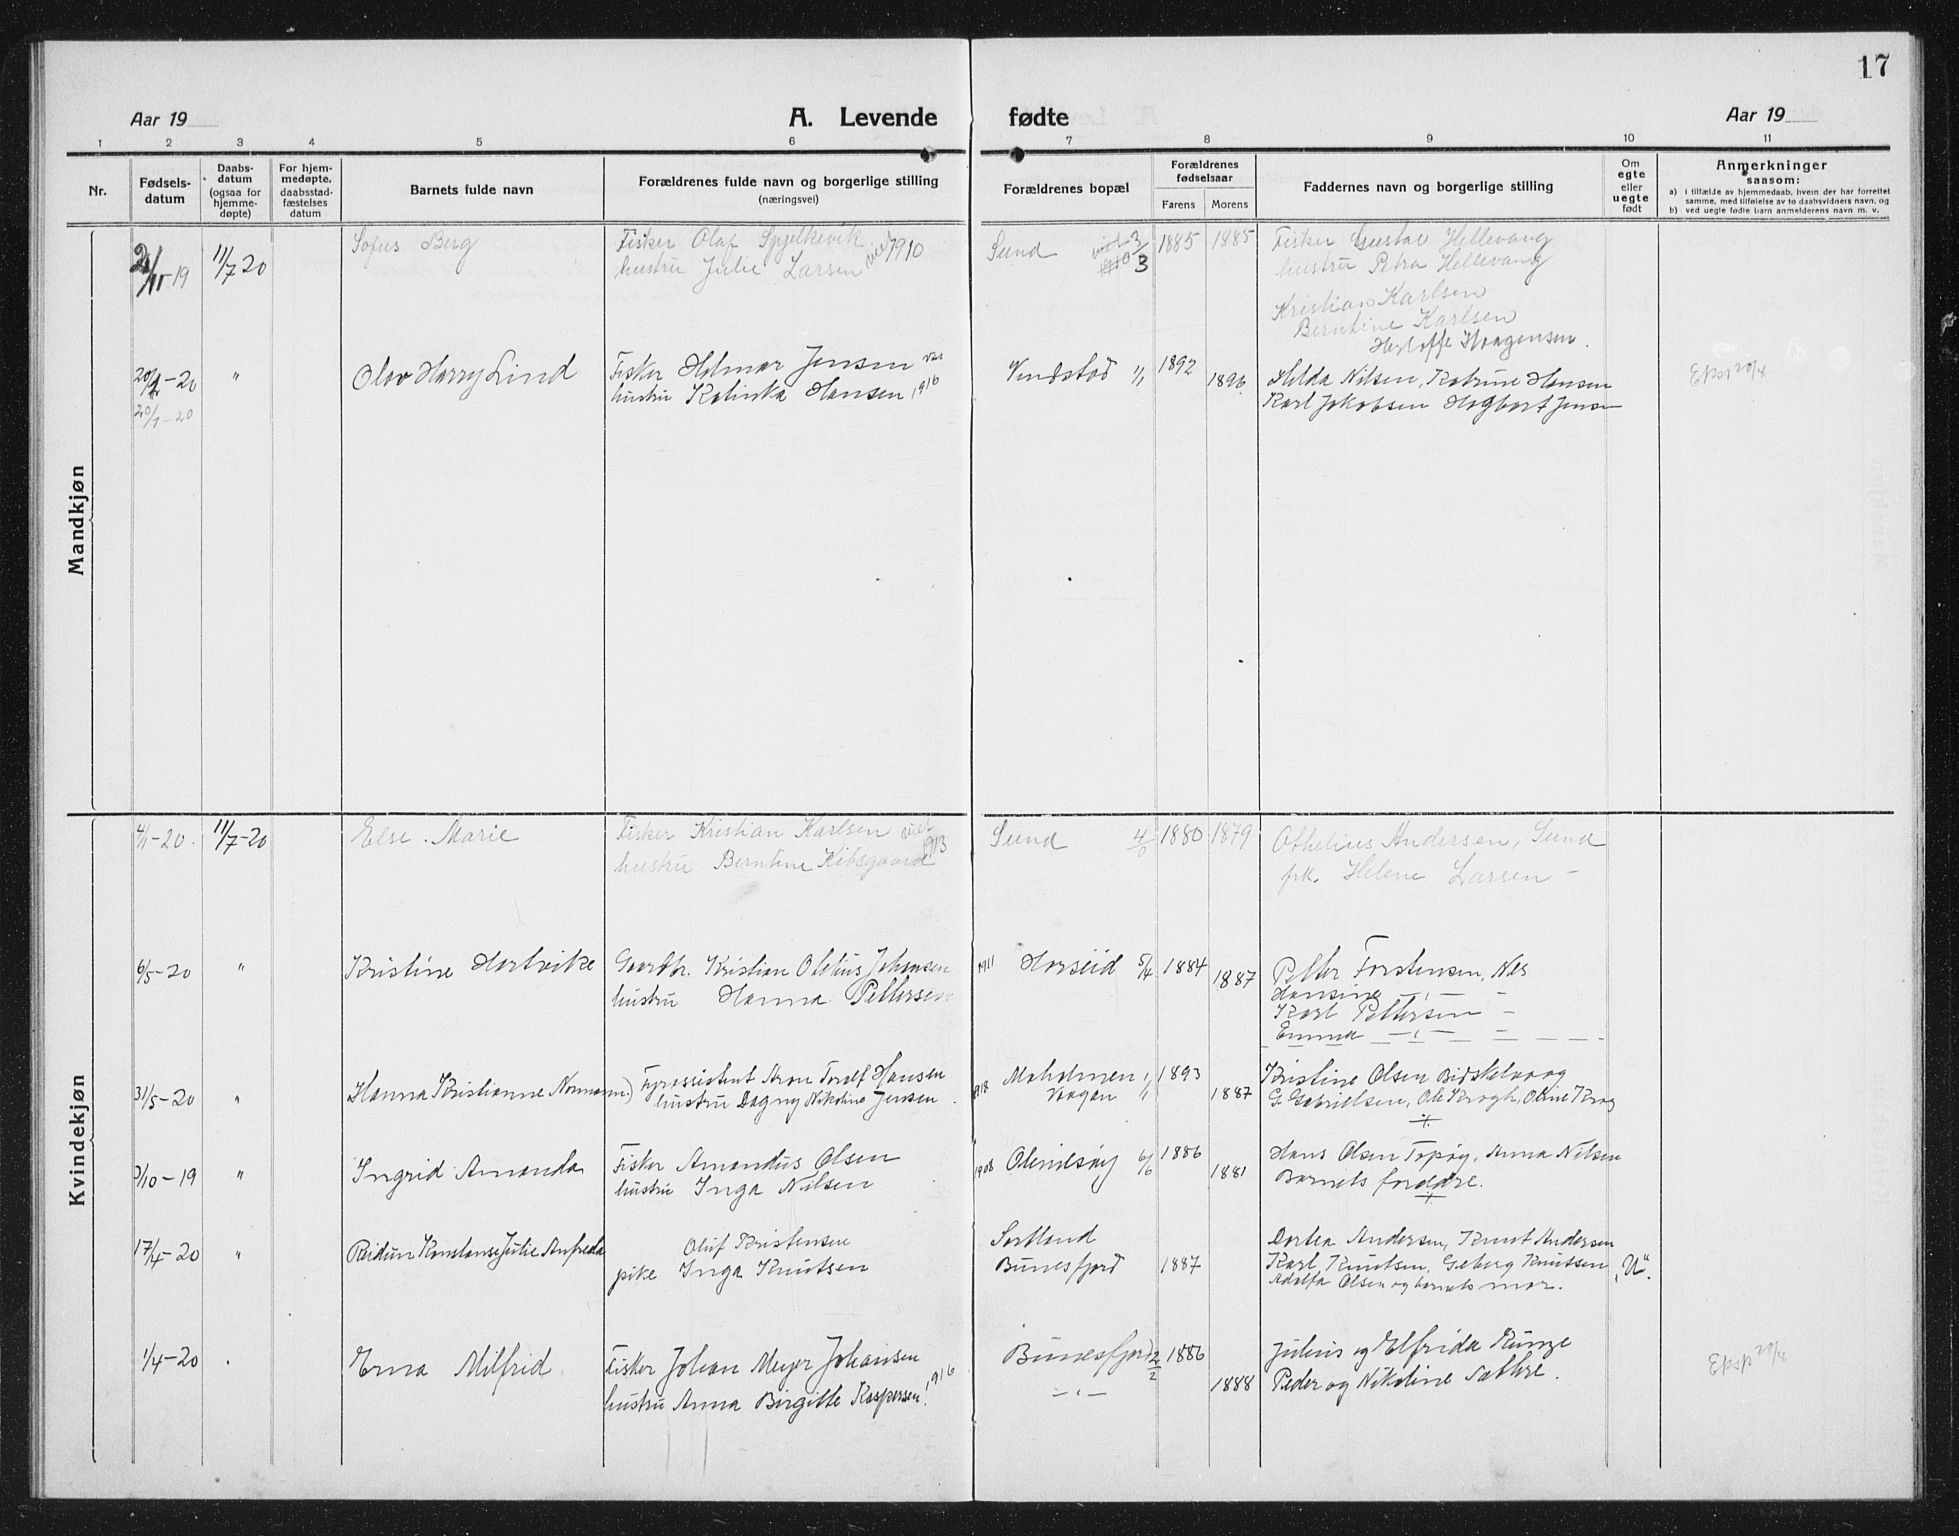 17
Aar 19 A. Levende fødte Aar 19
1 2 3 4 5 6 7 8 9 10 11
Nr.
Fødsels-
datum
Daabs-
datum
(ogsaa for
hjemme-
døpte)
For hjem-
medøpte,
daabsstad-
fæstelses
datum
Barnets fulde navn
Forældrenes fulde navn og borgerlige stilling
(næringsvei)
Forældrenes bopæl
Forældrenes
fødselsaar
Farens Morens
Faddernes navn og borgerlige stilling
Om
egte
eller
uegte
født
Anmerkninger
saasom:
a) i tilfælde av hjemmedaab, hvem der har forrettet
samme, med tilføielse av to daabsvidners navn, og
b) ved uegte fødte barn anmelderens navn m. v.
Mandkjøn
11/7 20 Sofus Berg Fisker Olaf Spjelkevik 1910 Sund 1885 1885 Fisker Gustav Hellevang
hustru Julie Larsen hustru Petra Hellevang
Kristian Karlsen
Berntine Karlsen
Haagensen.
" Olav Harry Lind Fisker Hilmar Jensen Vindstad 1/1 1892 1896 Hilda Nilsen, Katrine Hansen
20/1-20 hustru Kalinka Hansen, 1916 Karl Jakobsen Hagbart Jensen
Eksp 20/8
Kvindekjøn
4/1-20. 11/7-20 Else Marie Fisker Kristian Karlsen viet 1913 Sund 4/0 1880 1879 Othelius Andersen, Sund
hustru Berntine Kibsgaard frk. Helene Larsen -
6/5-20 " Kristine Hartvike Gaardbr. Kristian Johansen 1911 Horseid 5/4 1884 1887 Petter Torstensen, Nes
hustru Hanna Pettersen Hansine -"- -
Karl Pettersen -
Emma -"- -
31/5-20 " Hanna Kristianne Normann) Fyrassistent Aron Toralf Hansen 1918 Moholmen 1/1 1893 1887 Kristine Olsen
hustru Dagny Nikoline Jensen. Vaagan G. Gabrielsen, Ole Krogh, Oline Krog
/10-19 " Ingrid Amanda Fisker Amandus Olsen 1908 Olenilsøy 6/6 1886 1881 Hans Olsen Topøy, Anna Nilsen
hustru Inga Nilsen Barnets forældre.
17/4-20 " Reidun Konstanse Julie Anfreda Oluf Kristensen Sortland Dortea Andersen, Knut Andersen
pike Inga Knutsen Bunesfjord 1887 Karl Knutsen, Geberg Knutsen „U“.
Adolfa Olsen og barnets mor.
1/4-20 . Erna Milfrid Fisker Johan Meyer Johansen Bunesfjord 2/2 1886 Julius og Elfrida Kunze
hustru Anna Birgitte Kaspersen! 1916 -"- 1888 Peder og Nikoline Sathre.
Eksp 20/8